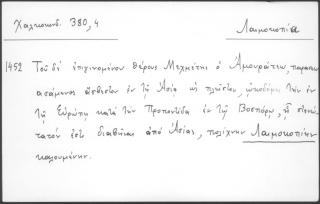 Χαλκοκονδ. 380,4
Λαιμοκοπία
1452 Τοῦ δ' ἐπιγινομένου θέρους Μεχμέτης ὁ Ἀμουράτεω, παρασκευ-
ασάμενος ἄσβεστον ἐν τῇ Ἀσίᾳ ὡς πλείστην, ᾠκοδόμει τὴν ἐν
τῇ Εὐρώπῃ κατὰ τὴν Προποντίδα ἐν τῷ Βοσπόρῳ, ᾗ στενώ-
τατόν ἐστι διαβῆναι ἀπὸ Ἀσίας, πολίχνην Λαιμοκοπίην
καλουμένην.